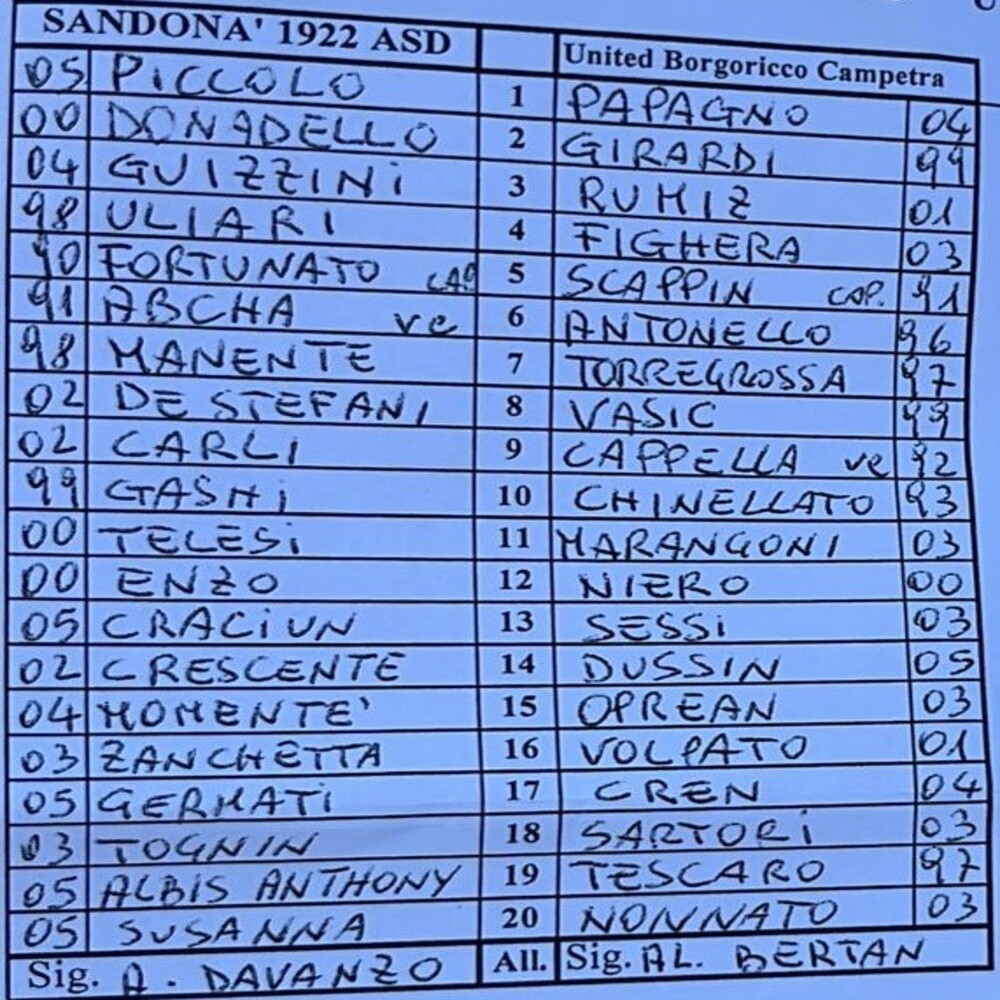 SANDONA' 1922 ASD United Borgoricco Campetra
05 PICCOLO 1 PAPAGNO 04
00 DONADELLO 2 GIRARDI 99
04 GUIZZINI 3 RUMIZ 01
98 ULIARI 4 FIGHERA 03
90 FORTUNATO CAP 5 SCAPPIN CAP. 91
91 ABCHA VC 6 ANTONELLO 96
98 MANENTE 7 TORREGROSSA 97
02 DE STEFANI 8 VASIC 99
02 CARLI 9 CAPPELLA VC 92
99 GASHI 10 CHINELLATO 93
00 TELESI 11 MARANGONI 03
00 ENZO 12 NIERO 00
05 CRACIUN 13 SESSI 03
02 CRESCENTE 14 DUSSIN 05
04 MOMENTE' 15 OPREAN 03
03 ZANCHETTA 16 VOLPATO 01
05 GERMATI 17 CREN 04
03 TOGNIN 18 SARTORI 03
05 ALBIS ANTHONY 19 TESCARO 97
05 SUSANNA 20 NONNATO 03
Sig. A. DAVANZO All. Sig. AL. BERTAN